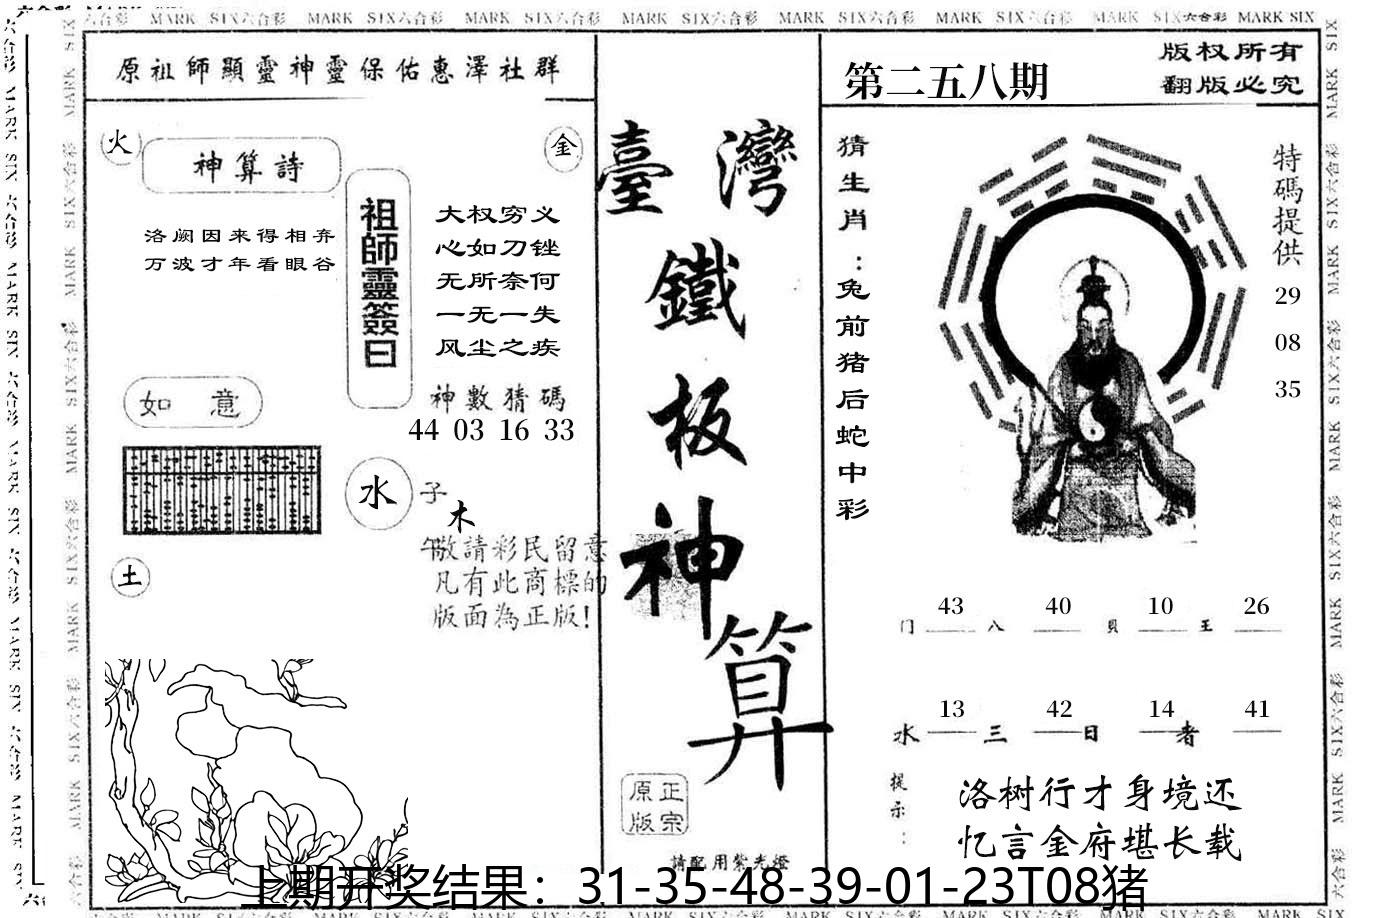 MARK SIX六合彩 MARK SIX六合彩 MARK SIX六合彩 MARK SIX六合彩 MARK SIX六合彩 MARK SIX六合彩 MARK SIX六合彩 MARK SIX
原祖師顯靈神靈保佑惠澤社群
火
金
神算詩
洛阙因来得相弃
万波才年看眼谷
祖師靈簽曰
大权穷义
心如刀锉
无所奈何
一无一失
风尘之疾
神數猜碼
44 03 16 33
如意
水
子
木
土
午
敬請彩民留意
凡有此商標的
版面為正版!
臺灣
鐵
板
神
算
原正
版宗
請配用紫光燈
第二五八期
版权所有
翻版必究
猜生肖:兔前猪后蛇中彩
特碼提供
29
08
35
43 40 10 26
门 八 貝 王
13 42 14 41
水 三 日 者
提示:
洛树行才身境还
忆言金府堪长载
上期开奖结果：31-35-48-39-01-23T08猪